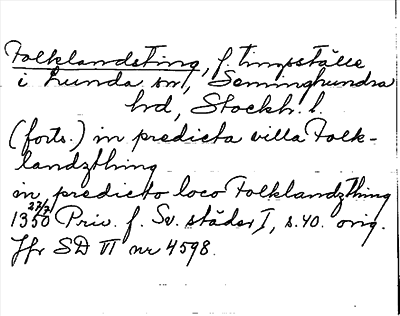 Folklandsting, f. tingsställe
i Lunda sn, Seminghundra
hd, Stockh. l.
(forts.) in predicta villa Folk-
landzthing
in predicto loco Folklandzthing
1350 27/7 Priv. f. Sv. städer I, s. 40. orig.
Jfr SD VI nr 4598.